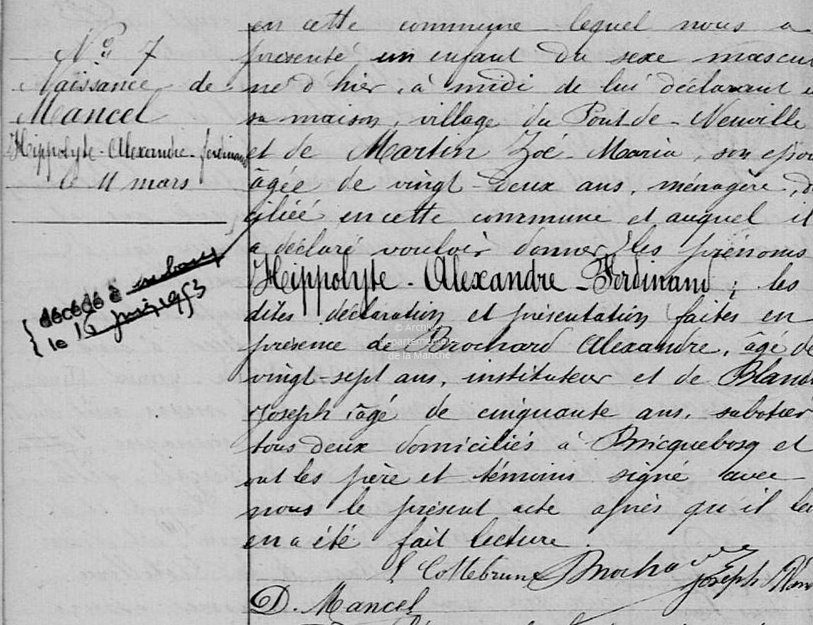 N° 7
Naissance de
Mancel
Hippolyte-Alexandre-Ferdinand
le 11 mars
décédé à
le 1 juin 1953
en cette commune lequel nous a
présenté un enfant du sexe mascu
né d'hier, à midi de lui déclarant e
sa maison, village du Pont-de-Neuville
et de Martin Zoé-Maria, son épou
âgée de vingt-deux ans, ménagère, d
ciliée en cette commune et auquel il
a déclaré vouloir donner les prénoms
Hippolyte-Alexandre-Ferdinand; les
dites déclaration et présentation faites en
présence de Brochard Alexandre, âgé de
vingt-sept ans, instituteur et de Bland
Joseph âgé de cinquante ans, sabotier
tous deux domiciliés à Bricquebosq et
ont les père et témoins signé avec
nous le présent acte après qu'il leu
en a été fait lecture.
Brochard Joseph
D. Mancel
© Archives
départementales
de la Manche